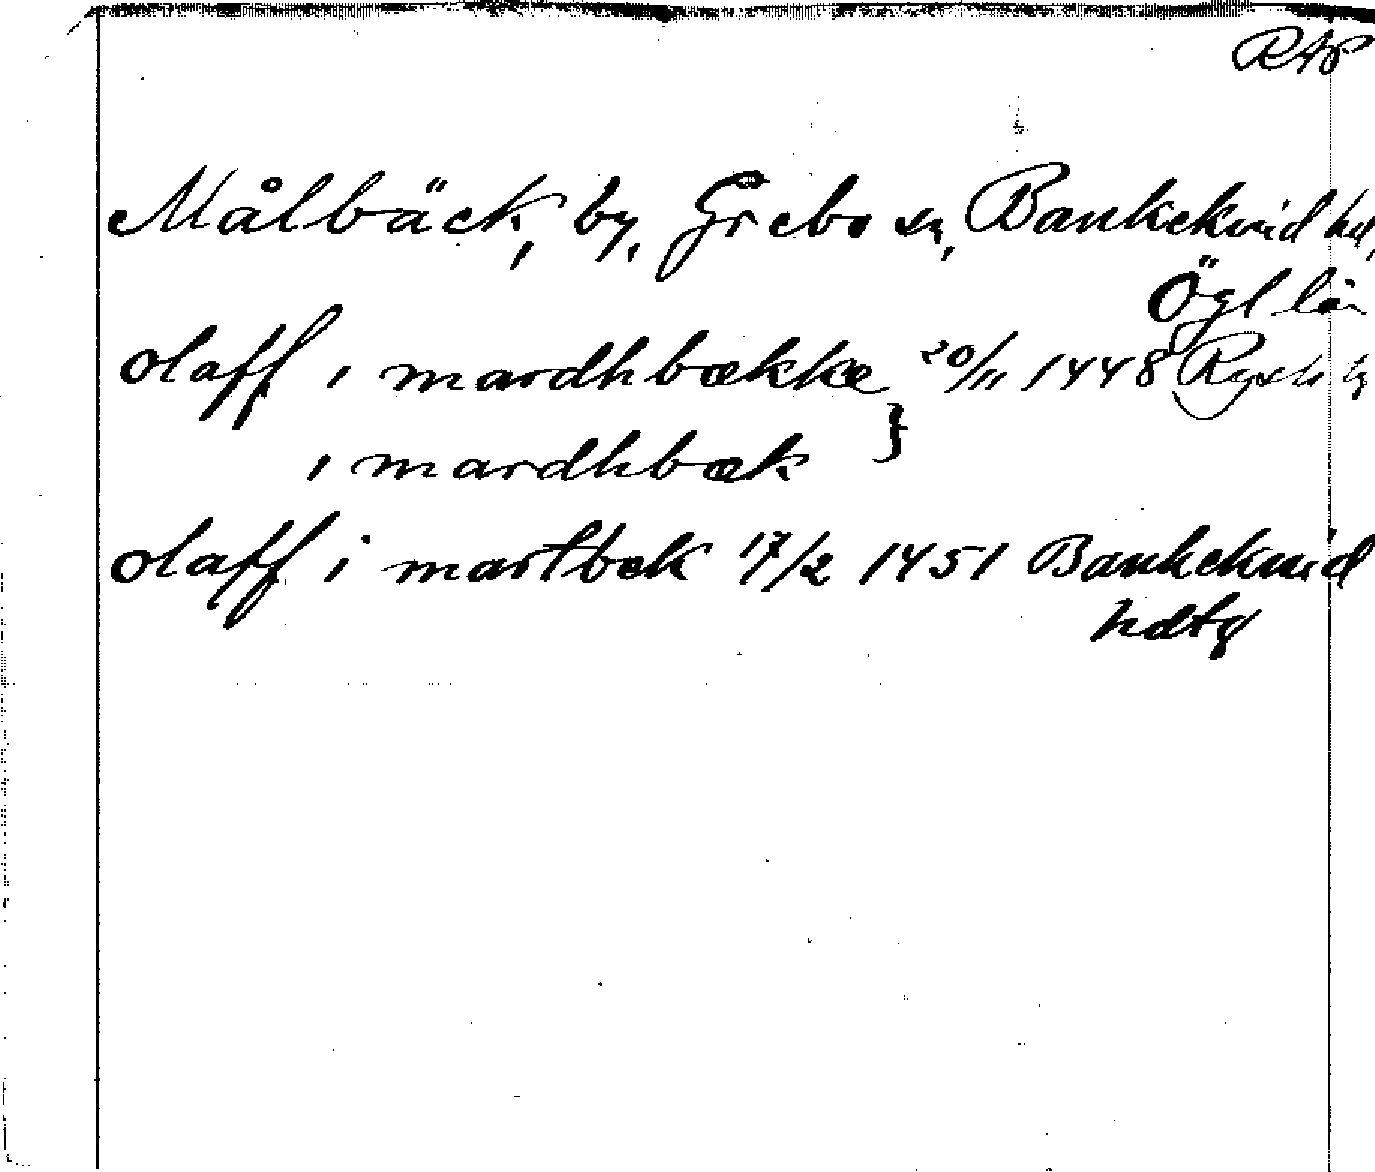 RAP
Målbäck, by, Grebo sn, Bankekind hd,
Ögl län
olaff i mardhbække 20/11 1448
i mardhbæk }
olaff i martbek 17/2 1451 Bankekind
hdtg